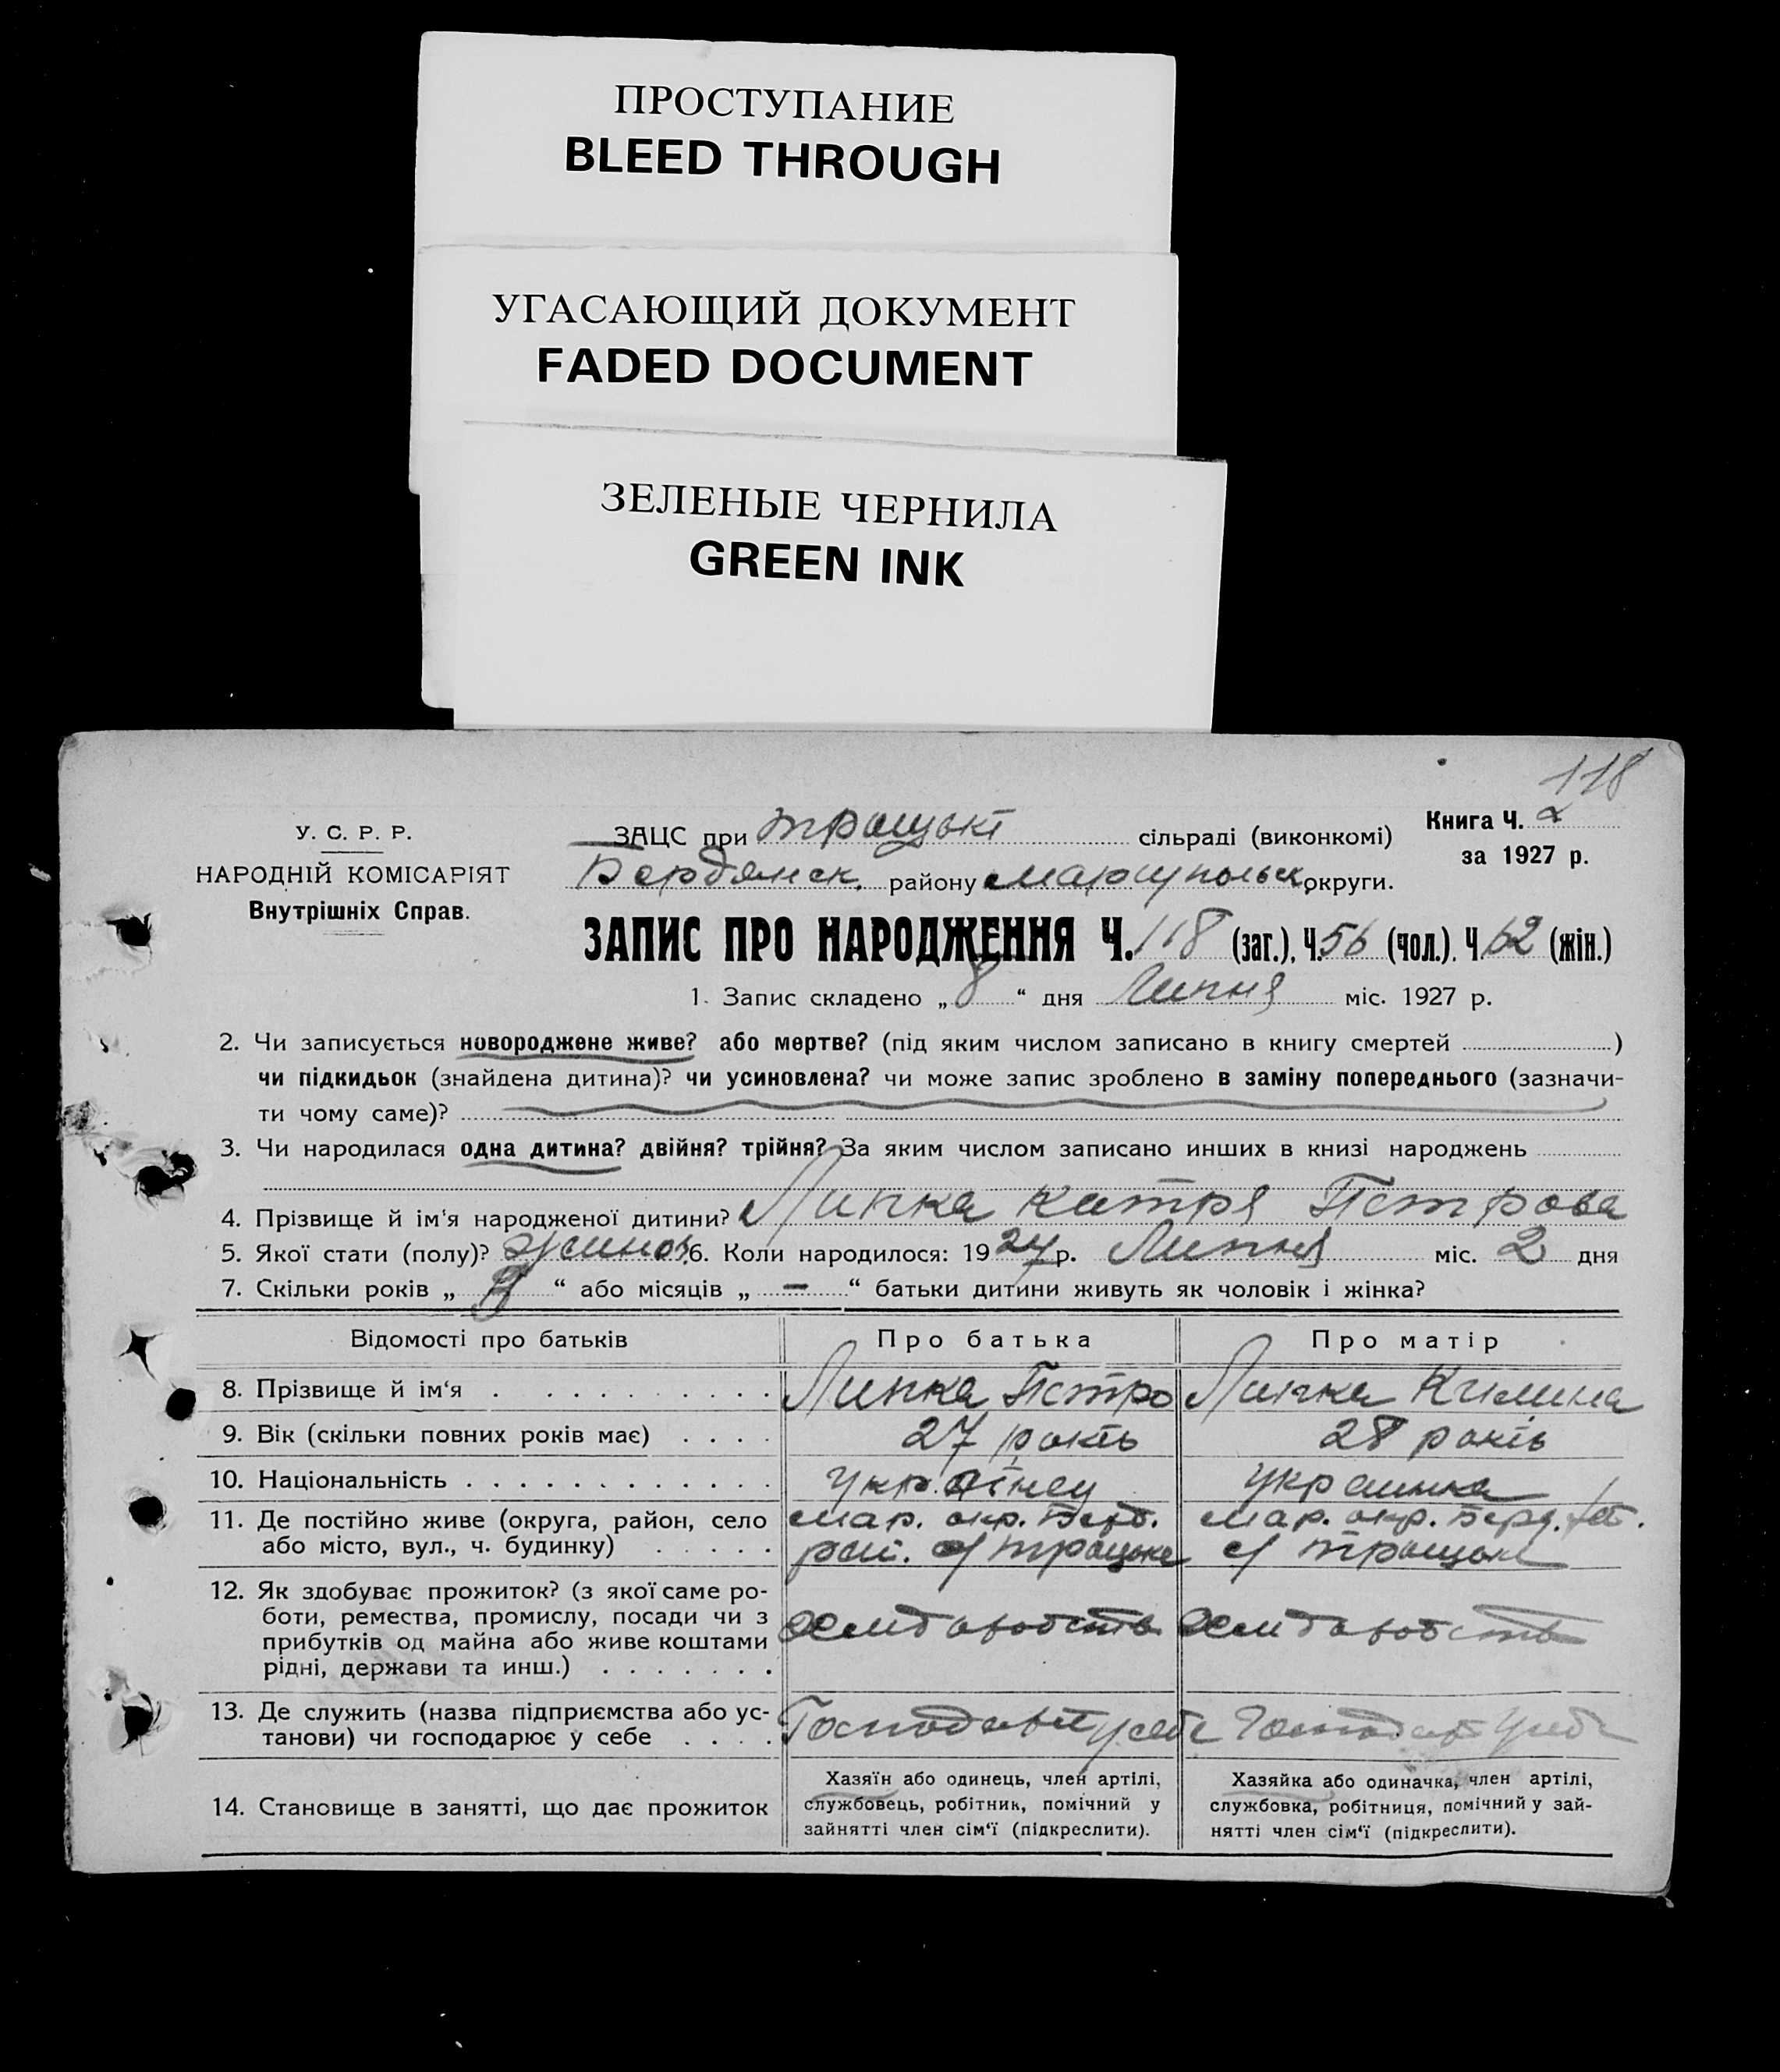 ПРОСТУПАНИЕ
BLEED THROUGH
УГАСАЮЩИЙ ДОКУМЕНТ
FADED DOCUMENT
ЗЕЛЕНЫЕ ЧЕРНИЛА
GREEN INK
118
У. С. Р. Р.
НАРОДНІЙ КОМІСАРІЯТ
Внутрішніх Справ.
ЗАЦС при Троцькі сільраді (виконкомі)
Книга Ч. 2
за 1927 р.
Бердянск. району Маріупольск. округи.
ЗАПИС ПРО НАРОДЖЕННЯ Ч. 118 (заг.), Ч. 56 (чол.). Ч. 62 (жін.)
1. Запис складено „ 8 “ дня Липня міс. 1927 р.
2. Чи записується новороджене живе? або мертве? (під яким числом записано в книгу смертей )
чи підкидьок (знайдена дитина)? чи усиновлена? чи може запис зроблено в заміну попереднього (зазначи-
ти чому саме)?
3. Чи народилася одна дитина? двійня? трійня? За яким числом записано инших в книзі народжень
4. Прізвище й ім'я народженої дитини? Липка Катря Петрова
5. Якої стати (полу)? жіноч. 6. Коли народилося: 1927 р. Липня міс. 2 дня
7. Скільки років „ “ або місяців „ — “ батьки дитини живуть як чоловік і жінка?
Відомості про батьків Про батька Про матір
8. Прізвище й ім'я Липка Петро Липка Килина
9. Вік (скільки повних років має) 27 років 28 років
10. Національність українец украинка
11. Де постійно живе (округа, район, село
або місто, вул., ч. будинку)
мар. окр. Берд.
рай. с/ Троцьке
мар. окр. Берд.
с/ Троцьке
12. Як здобуває прожиток? (з якої саме ро-
боти, ремества, промислу, посади чи з
прибутків од майна або живе коштами
рідні, держави та инш.)
13. Де служить (назва підприємства або ус-
танови) чи господарює у себе
14. Становище в занятті, що дає прожиток
Хазяїн або одинець, член артілі,
службовець, робітник, помічний у
зайнятті член сім'ї (підкреслити).
Хазяйка або одиначка, член артілі,
службовка, робітниця, помічний у зай-
нятті член сім'ї (підкреслити).